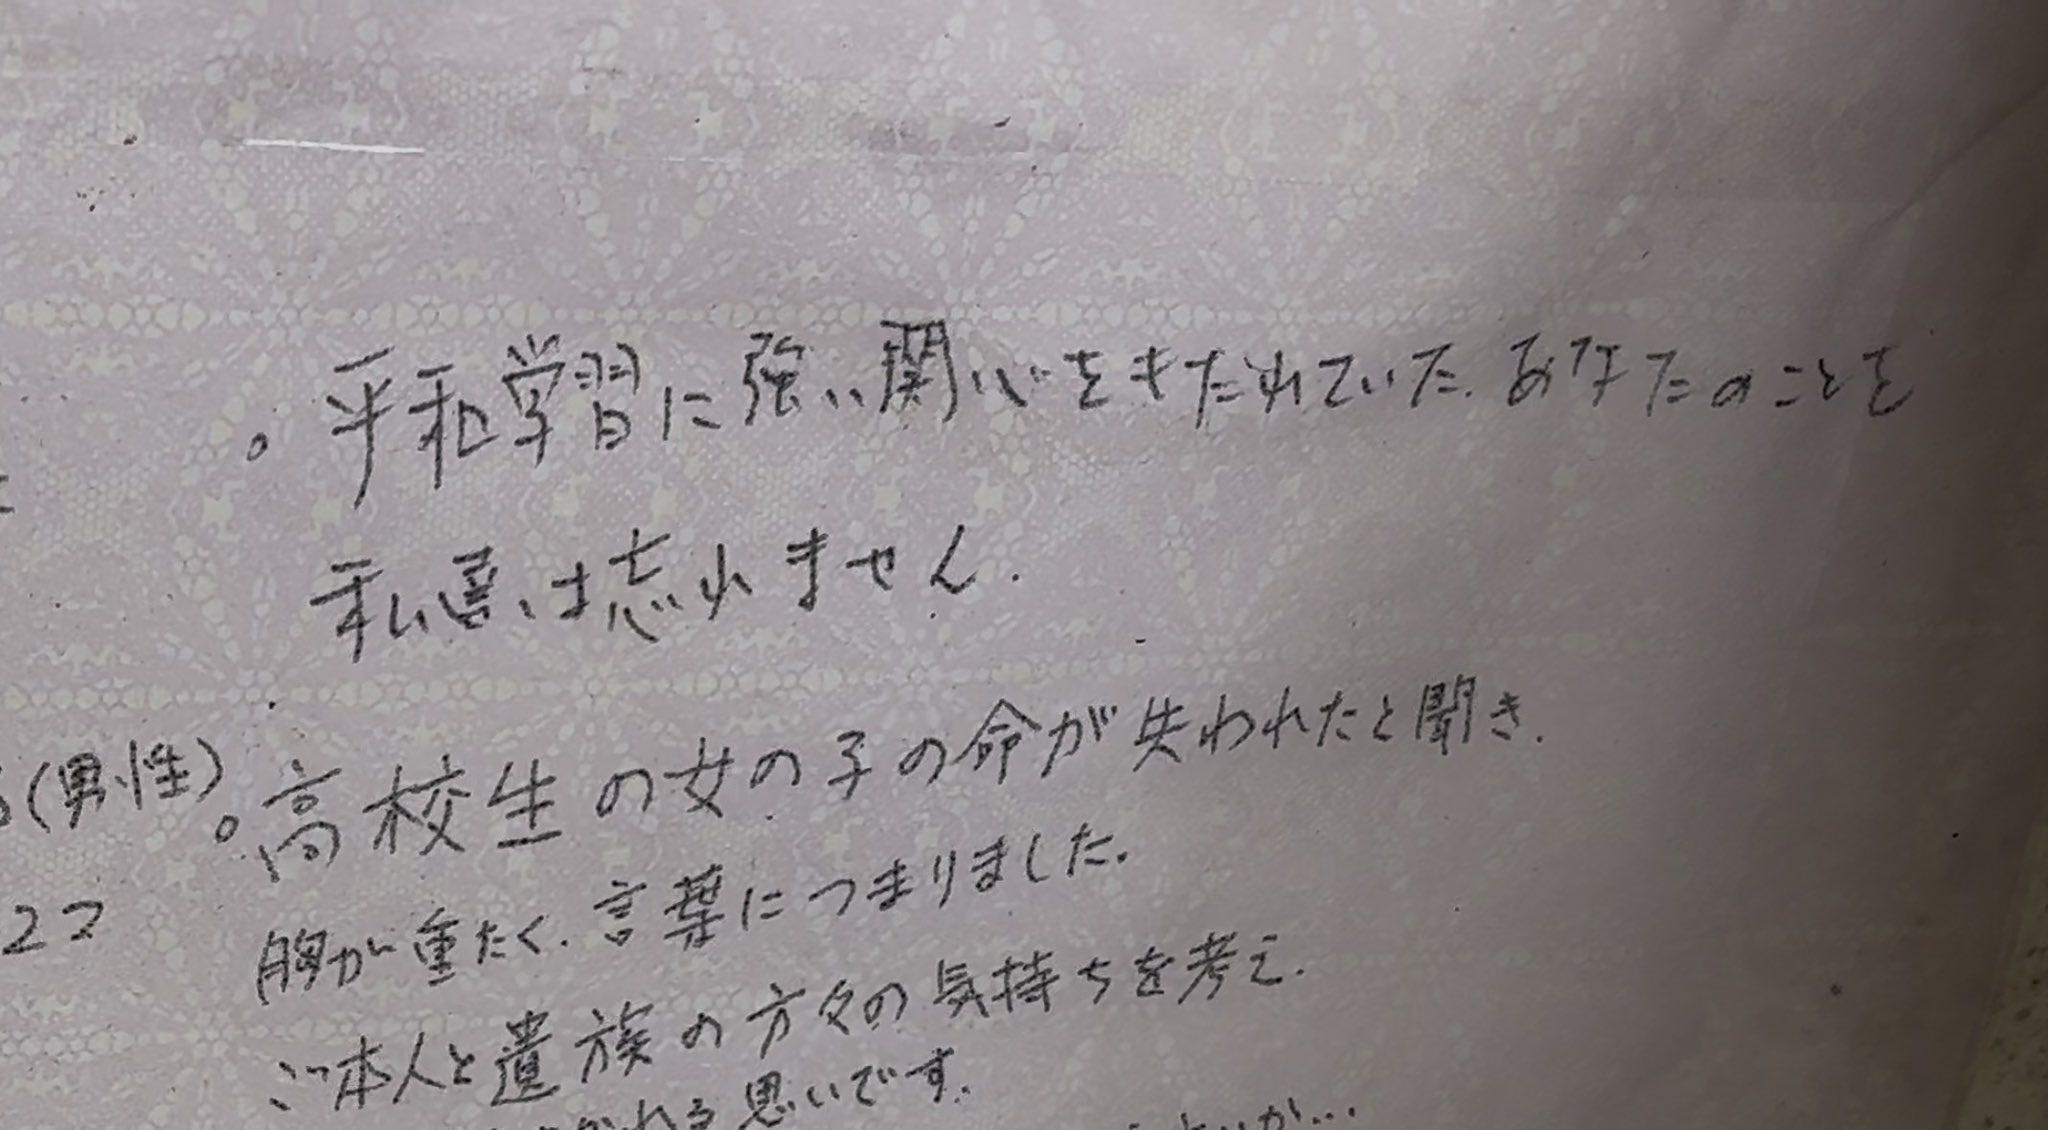 。平和学習に強い関心をきたれていた、あなたのことを
私喜は忘れません.
(男性)
。高校生の女の子の命が失われたと聞き、
22
胸が重たく、言葉につまりました。
ご本人と遺族の方々の気持ちを考え、
思いです。